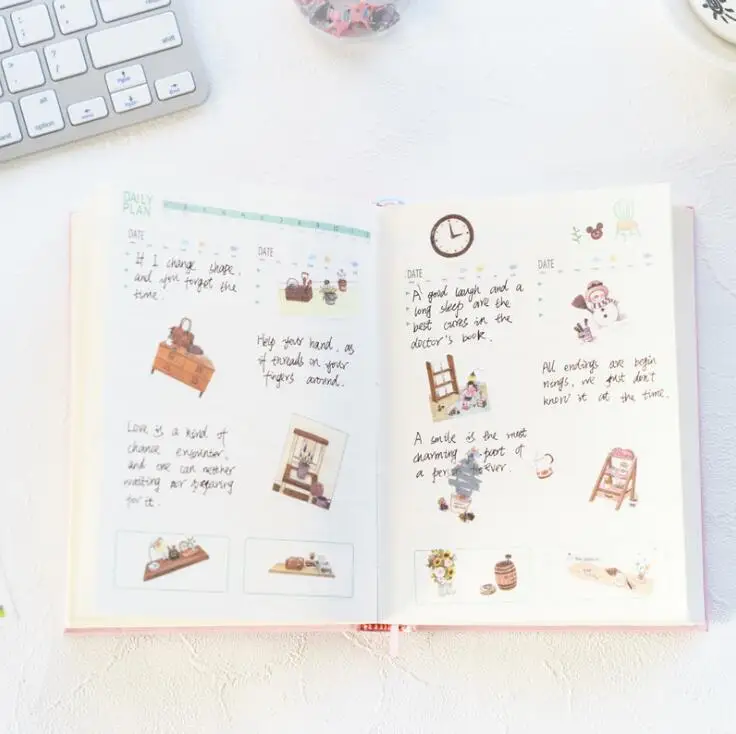 DAILY
PLAN
DATE
If I change shape,
and you forget the
time.
DATE
Help your hand, as
if threads on your
fingers around.
Love is a kind of
chance encounter,
and one can neither
waiting nor preparing
for it.
DATE
A good laugh and a
long sleep are the
best cures in the
doctor's book.
DATE
All endings are begin
nings, we just don't
know it at the time.
A smile is the most
charming part of
a ever.
option